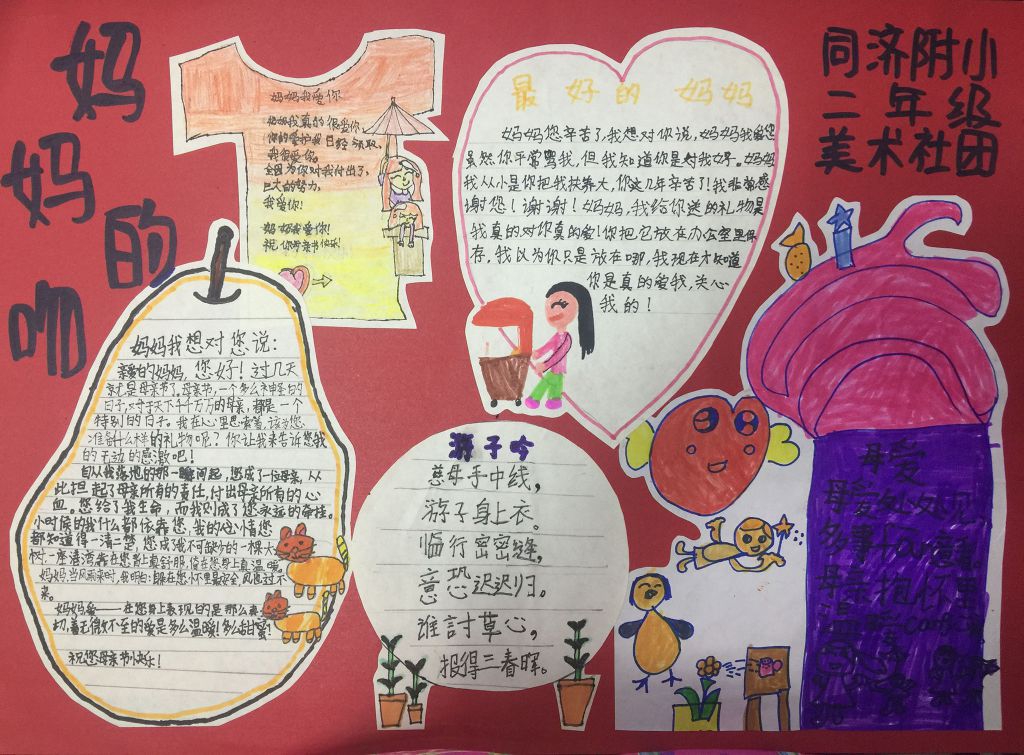 妈妈的吻
同济附小
二年级
美术社团
妈妈我爱你
妈妈我真的很爱你,
你的爱护我已经领取,
我很爱你。
全因为你对我付出了,
巨大的努力,
我爱你!
妈妈我爱你!
祝你母亲节快乐!
最好的 妈妈
妈妈您辛苦了,我想对你说,妈妈我爱您
虽然你平常骂我,但我知道你是对我好。妈妈
我从小是你把我扶养大,你这几年辛苦了!我非常感
谢您!谢谢!妈妈,我给你送的礼物是
我真的对你真的爱!你把它放在办公室里保
存,我以为你只是放在哪,我现在才知道
你是真的爱我,关心
我的!
妈妈我想对您说:
亲爱的妈妈,您好!过几天
就是母亲节了。母亲节,一个多么神圣的
日子,对于天下千千万万的母亲,都是一个
特别的日子。我在心里思索着,该为您
准备什么样的礼物呢?你让我来告诉您我
的无边的感激吧!
自从我落地的那一瞬间起,您成了一位母亲,从
此担起了母亲所有的责任,付出母亲所有的心
血。您给了我生命,而我则成了您永远的牵挂。
小时候的我什么都依靠您,我的心情您
都知道得一清二楚,您成了我不可缺少的一棵大
树,一座港湾靠在您肩上真舒服,倚在您身上真温暖。
妈妈,当风雨来时,我明白:躲在您怀里最安全,风也过不
来。
妈妈爱——在您身上表现的是那么亲
切,着无微不至的爱是多么温暖!多么甜蜜!
祝您母亲节快乐!
游子吟
慈母手中线,
游子身上衣。
临行密密缝,
意恐迟迟归。
谁討草心,
报得三春晖。
母爱
母爱处处见
多事
母亲 抱怀里
温